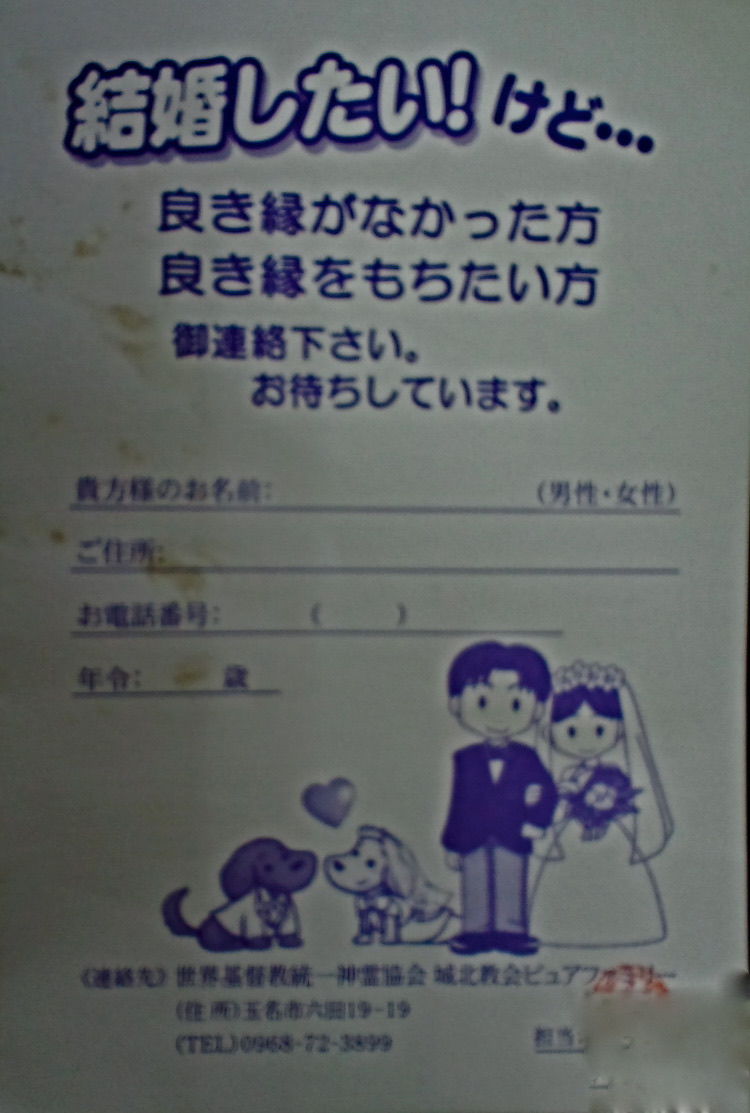 結婚したい!けど…
良き縁がなかった方
良き縁をもちたい方
御連絡下さい。
お待ちしています。
貴方様のお名前: (男性・女性)
ご住所:
お電話番号: ( )
年令: 歳
《連絡先》世界基督教統一神霊協会 城北教会ピュアファミリー
(住所)玉名市六田19-19
(TEL)0968-72-3899
担当: